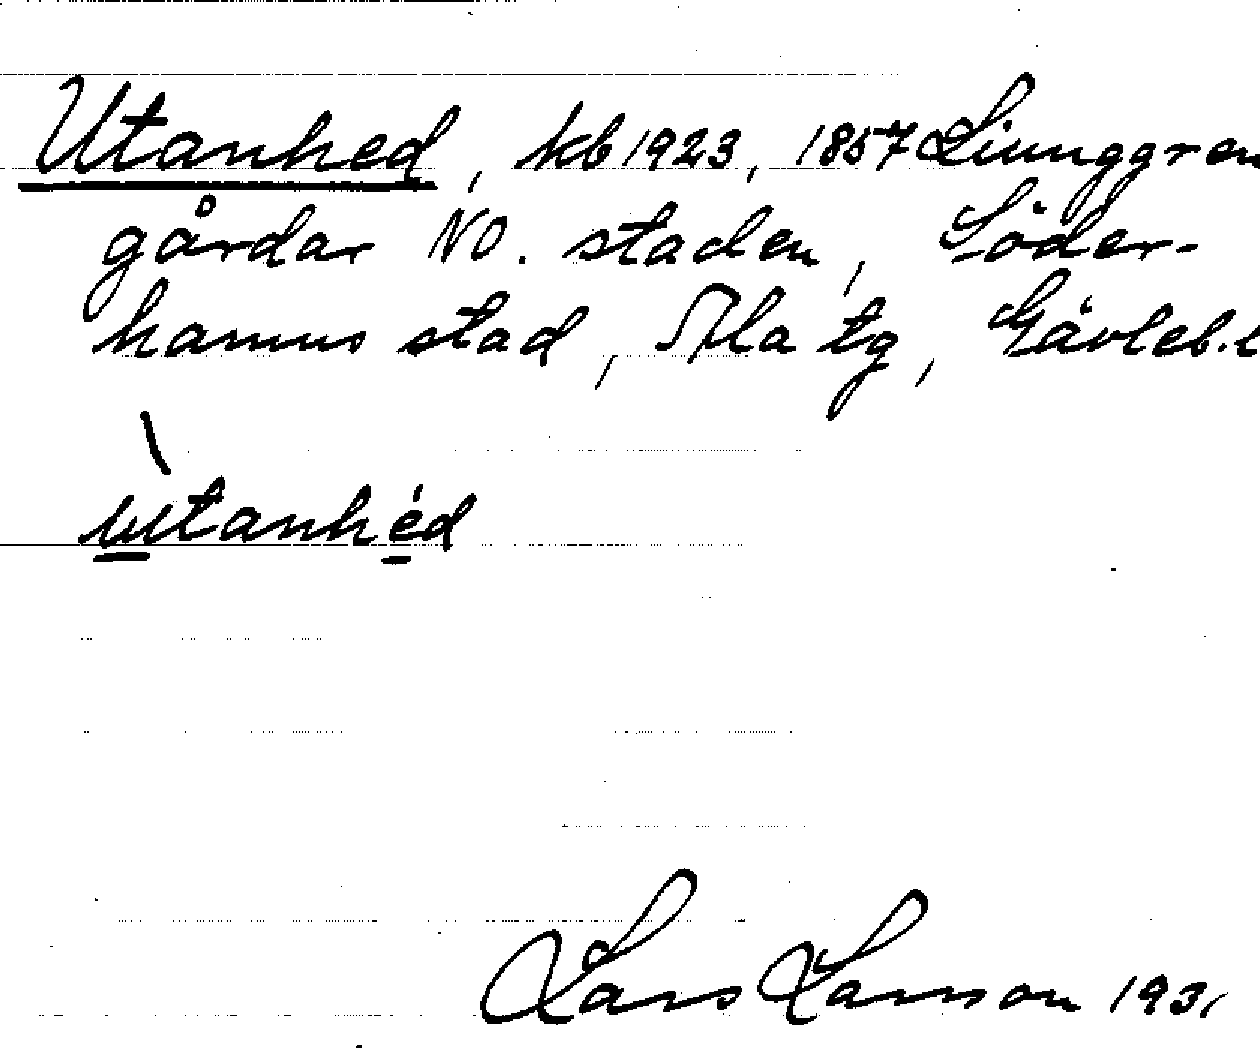 Utanhed, kb 1923, 1857 Ljunggren
gårdar NO. staden, Söder-
hamns stad, Ala tg, Gävleb. l
utanhéd
Lars Larsson 1931